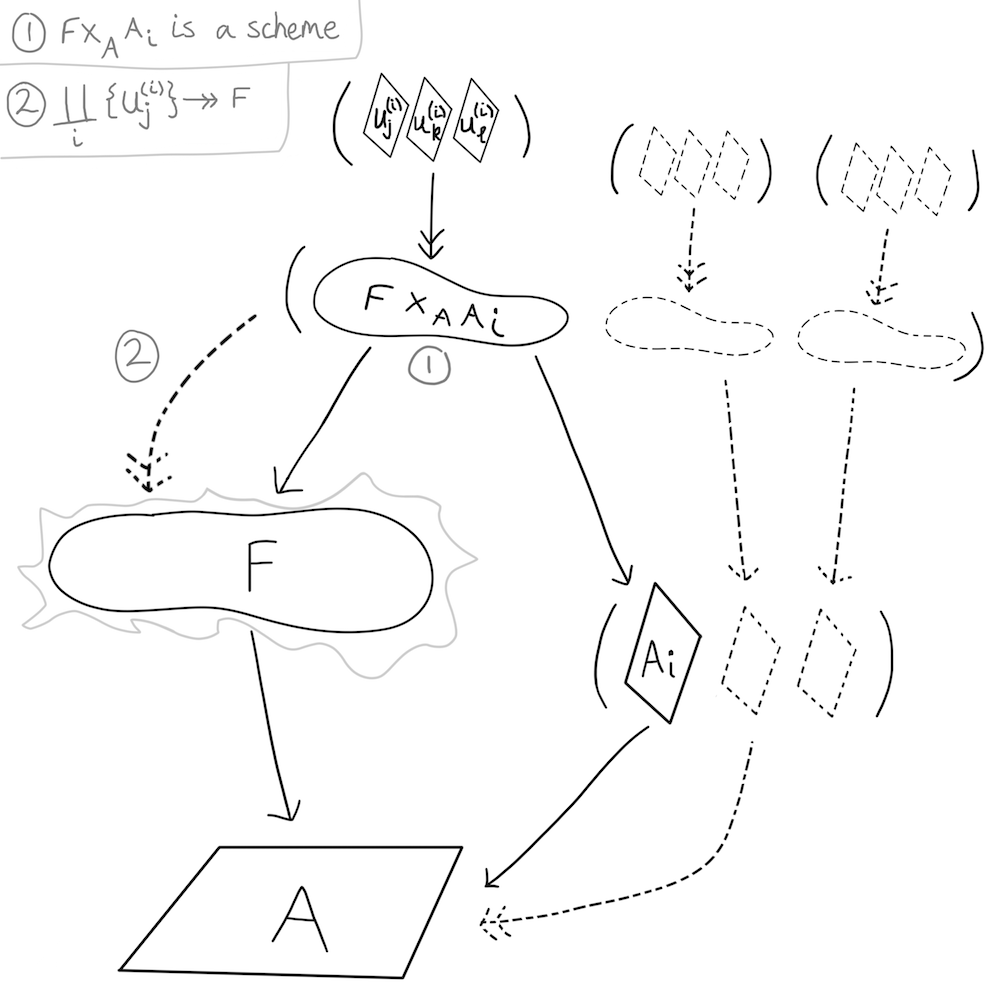 ① F×_A A_i is a scheme
② ∐_i {U_j^(i)} ↠ F
( U_j^(i) U_k^(i) U_ℓ^(i) )
( F ×_A A_i
②
①
F
( A_i )
A